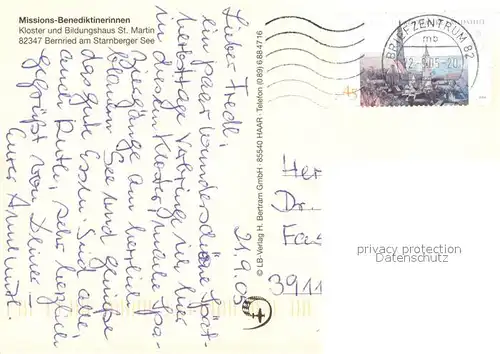 Missions-Benediktinerinnen
Kloster und Bildungshaus St. Martin
82347 Bernried am Starnberger See
21.9.05
Lieber Fredl,
ein paar wunderschöne Spät-
herbsttage verbringe ich hier
in diesem Kloster, mache Spa-
ziergänge am herrlich
blauen See und genieße
das gute Essen. Seid alle,
auch Ruth, sehr herzlich
gegrüßt von Deiner
Eurer
© LB-Verlag H. Bertram GmbH · 85540 HAAR · Telefon (0 89) 6 88 47 16
BRIEFZENTRUM 82
mb
.05-20
Her
Dr.
391
privacy protection
Datenschutz